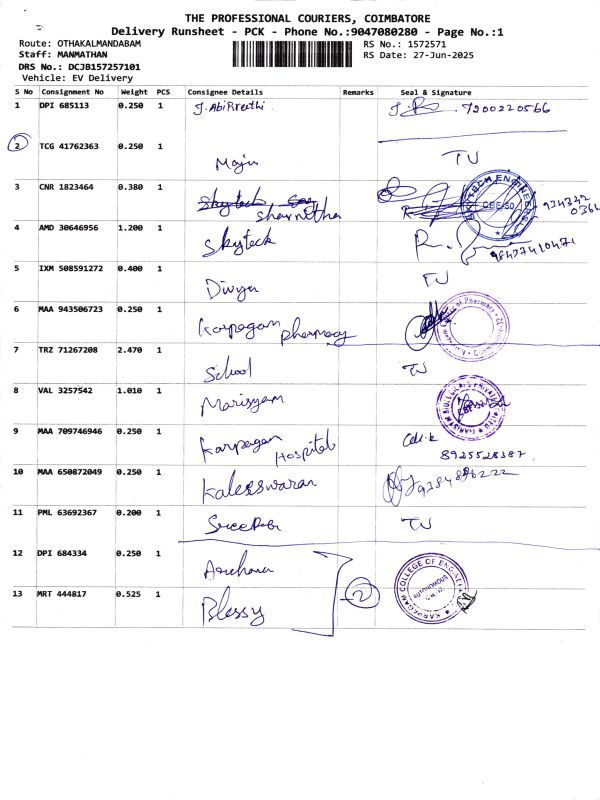 THE PROFESSIONAL COURIERS, COIMBATORE
Delivery Runsheet - PCK - Phone No.:9047080280 - Page No.:1
Route: OTHAKALMANDABAM
Staff: MANMATHAN
DRS No.: DCJB157257101
Vehicle: EV Delivery
RS No.: 1572571
RS Date: 27-Jun-2025
S No Consignment No Weight PCS Consignee Details Remarks Seal & Signature
1 DPI 685113 0.250 1 J. AbiPreethi 7200220566
2 TCG 41762363 0.250 1 Maju TU
3 CNR 1823464 0.380 1 Skyteck sharnitha
4 AMD 30646956 1.200 1 Skyteck 9843741047
5 IXM 508591272 0.400 1 Divya TU
6 MAA 943506723 0.250 1 Karpagam pharmacy
7 TRZ 71267208 2.470 1 School TU
8 VAL 3257542 1.010 1 Marisyam
9 MAA 709746946 0.250 1 Karpagan Hospital 8925528387
10 MAA 650872049 0.250 1 Kaleeswaran
11 PML 63692367 0.200 1 TU
12 DPI 684334 0.250 1 Archana
13 MRT 444817 0.525 1 Blessy 2
KARPAGAM COLLEGE OF ENGINEERING